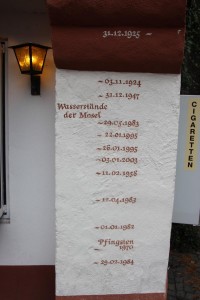 31.12.1925 –
– 03.11.1924
– 31.12.1947
Wasserstände
der Mosel
– 29.05.1983
– 22.01.1995
– 28.01.1995
– 03.01.2003
– 11.02.1958
– 12.04.1983
– 01.01.1982
Pfingsten
– 1970
– 29.02.1984
CIGARETTEN